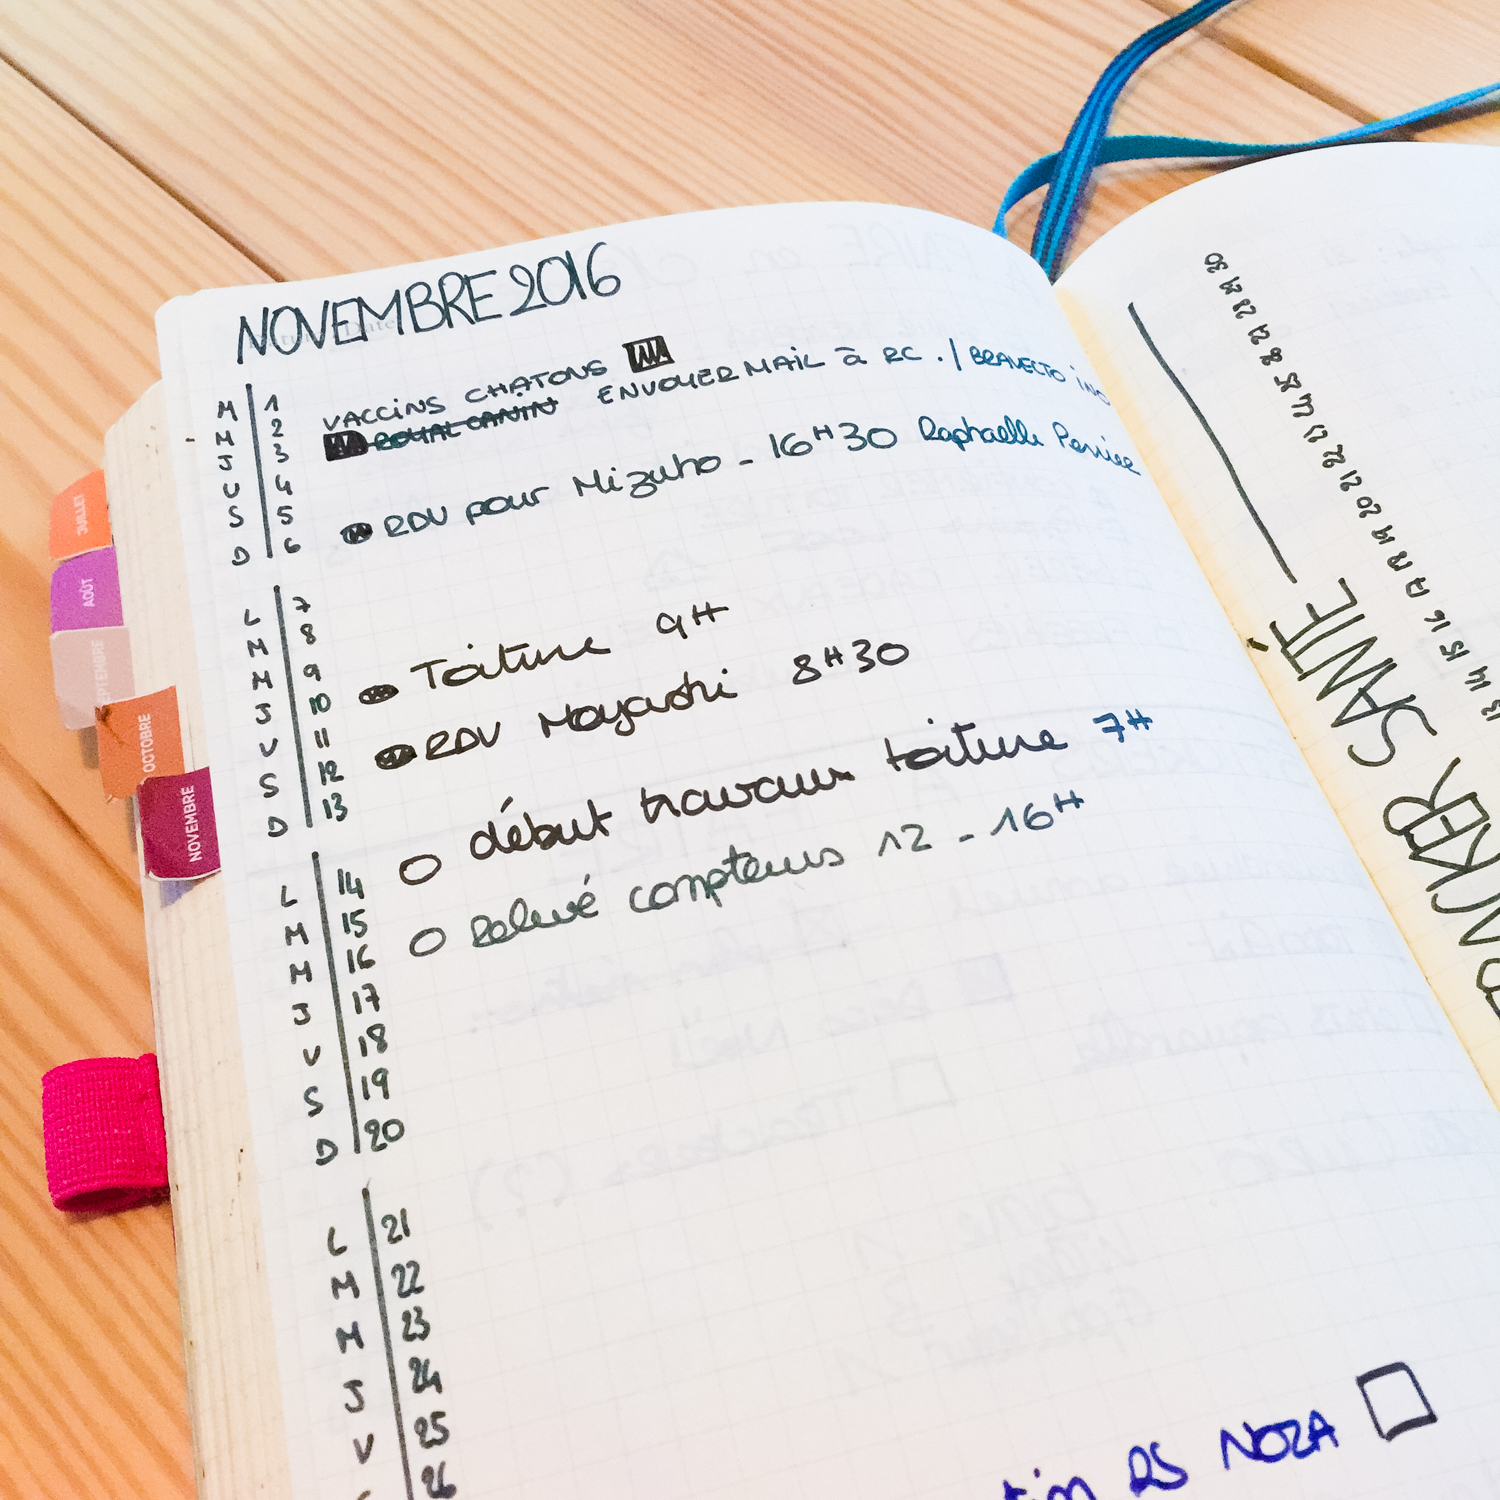 NOVEMBRE 2016
M 1 VACCINS CHATONS
M 2 ROYAL CANIN ENVOYER MAIL à RC . / BRAVECTO
J 3
V 4 RDV pour Mizuho - 16H30 Raphaëlle
S 5
D 6
L 7
M 8
M 9 Toiture 9H
J 10
V 11 RDV Moyashi 8H30
S 12
D 13
L 14 début travaux toiture 7H
M 15
M 16 Relevé compteurs 12 - 16H
J 17
V 18
S 19
D 20
L 21
M 22
M 23
J 24
V 25
26
RS NOZA
JUILLET
AOÛT
SEPTEMBRE
OCTOBRE
NOVEMBRE
TRACKER SANTÉ
13 14 15 16 17 18 19 20 21 22 23 24 25 26 27 28 29 30